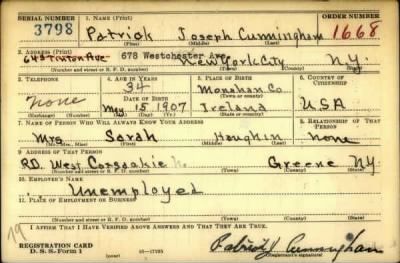 SERIAL NUMBER 1. NAME (Print) ORDER NUMBER
3798 Patrick Joseph Cunningham 1668
(First) (Middle) (Last)
2. ADDRESS (Print)
643 Tinton Ave 678 Westchester Ave. New York City N.Y.
(Number and street or R. F. D. number) (Town) (County) (State)
3. TELEPHONE 4. AGE IN YEARS 5. PLACE OF BIRTH 6. COUNTRY OF CITIZENSHIP
34 Monahan Co.
none DATE OF BIRTH (Town or county)
May 15 1907 Ireland USA
(Exchange) (No.) (Mo.) (Day) (Yr.) (State or country)
7. NAME OF PERSON WHO WILL ALWAYS KNOW YOUR ADDRESS 8. RELATIONSHIP OF THAT PERSON
Mrs Sarah none
(Mr., Mrs., Miss) (First) (Middle) (Last)
9. ADDRESS OF THAT PERSON
RD. West Greene NY
(Number and street or R. F. D. number) (Town) (County) (State)
10. EMPLOYER'S NAME
Unemployed
11. PLACE OF EMPLOYMENT OR BUSINESS
(Number and street or R. F. D. number) (Town) (County) (State)
I AFFIRM THAT I HAVE VERIFIED ABOVE ANSWERS AND THAT THEY ARE TRUE.
REGISTRATION CARD
D. S. S. Form 1 16—17105 Patrick J Cunningham
(Registrant's signature)